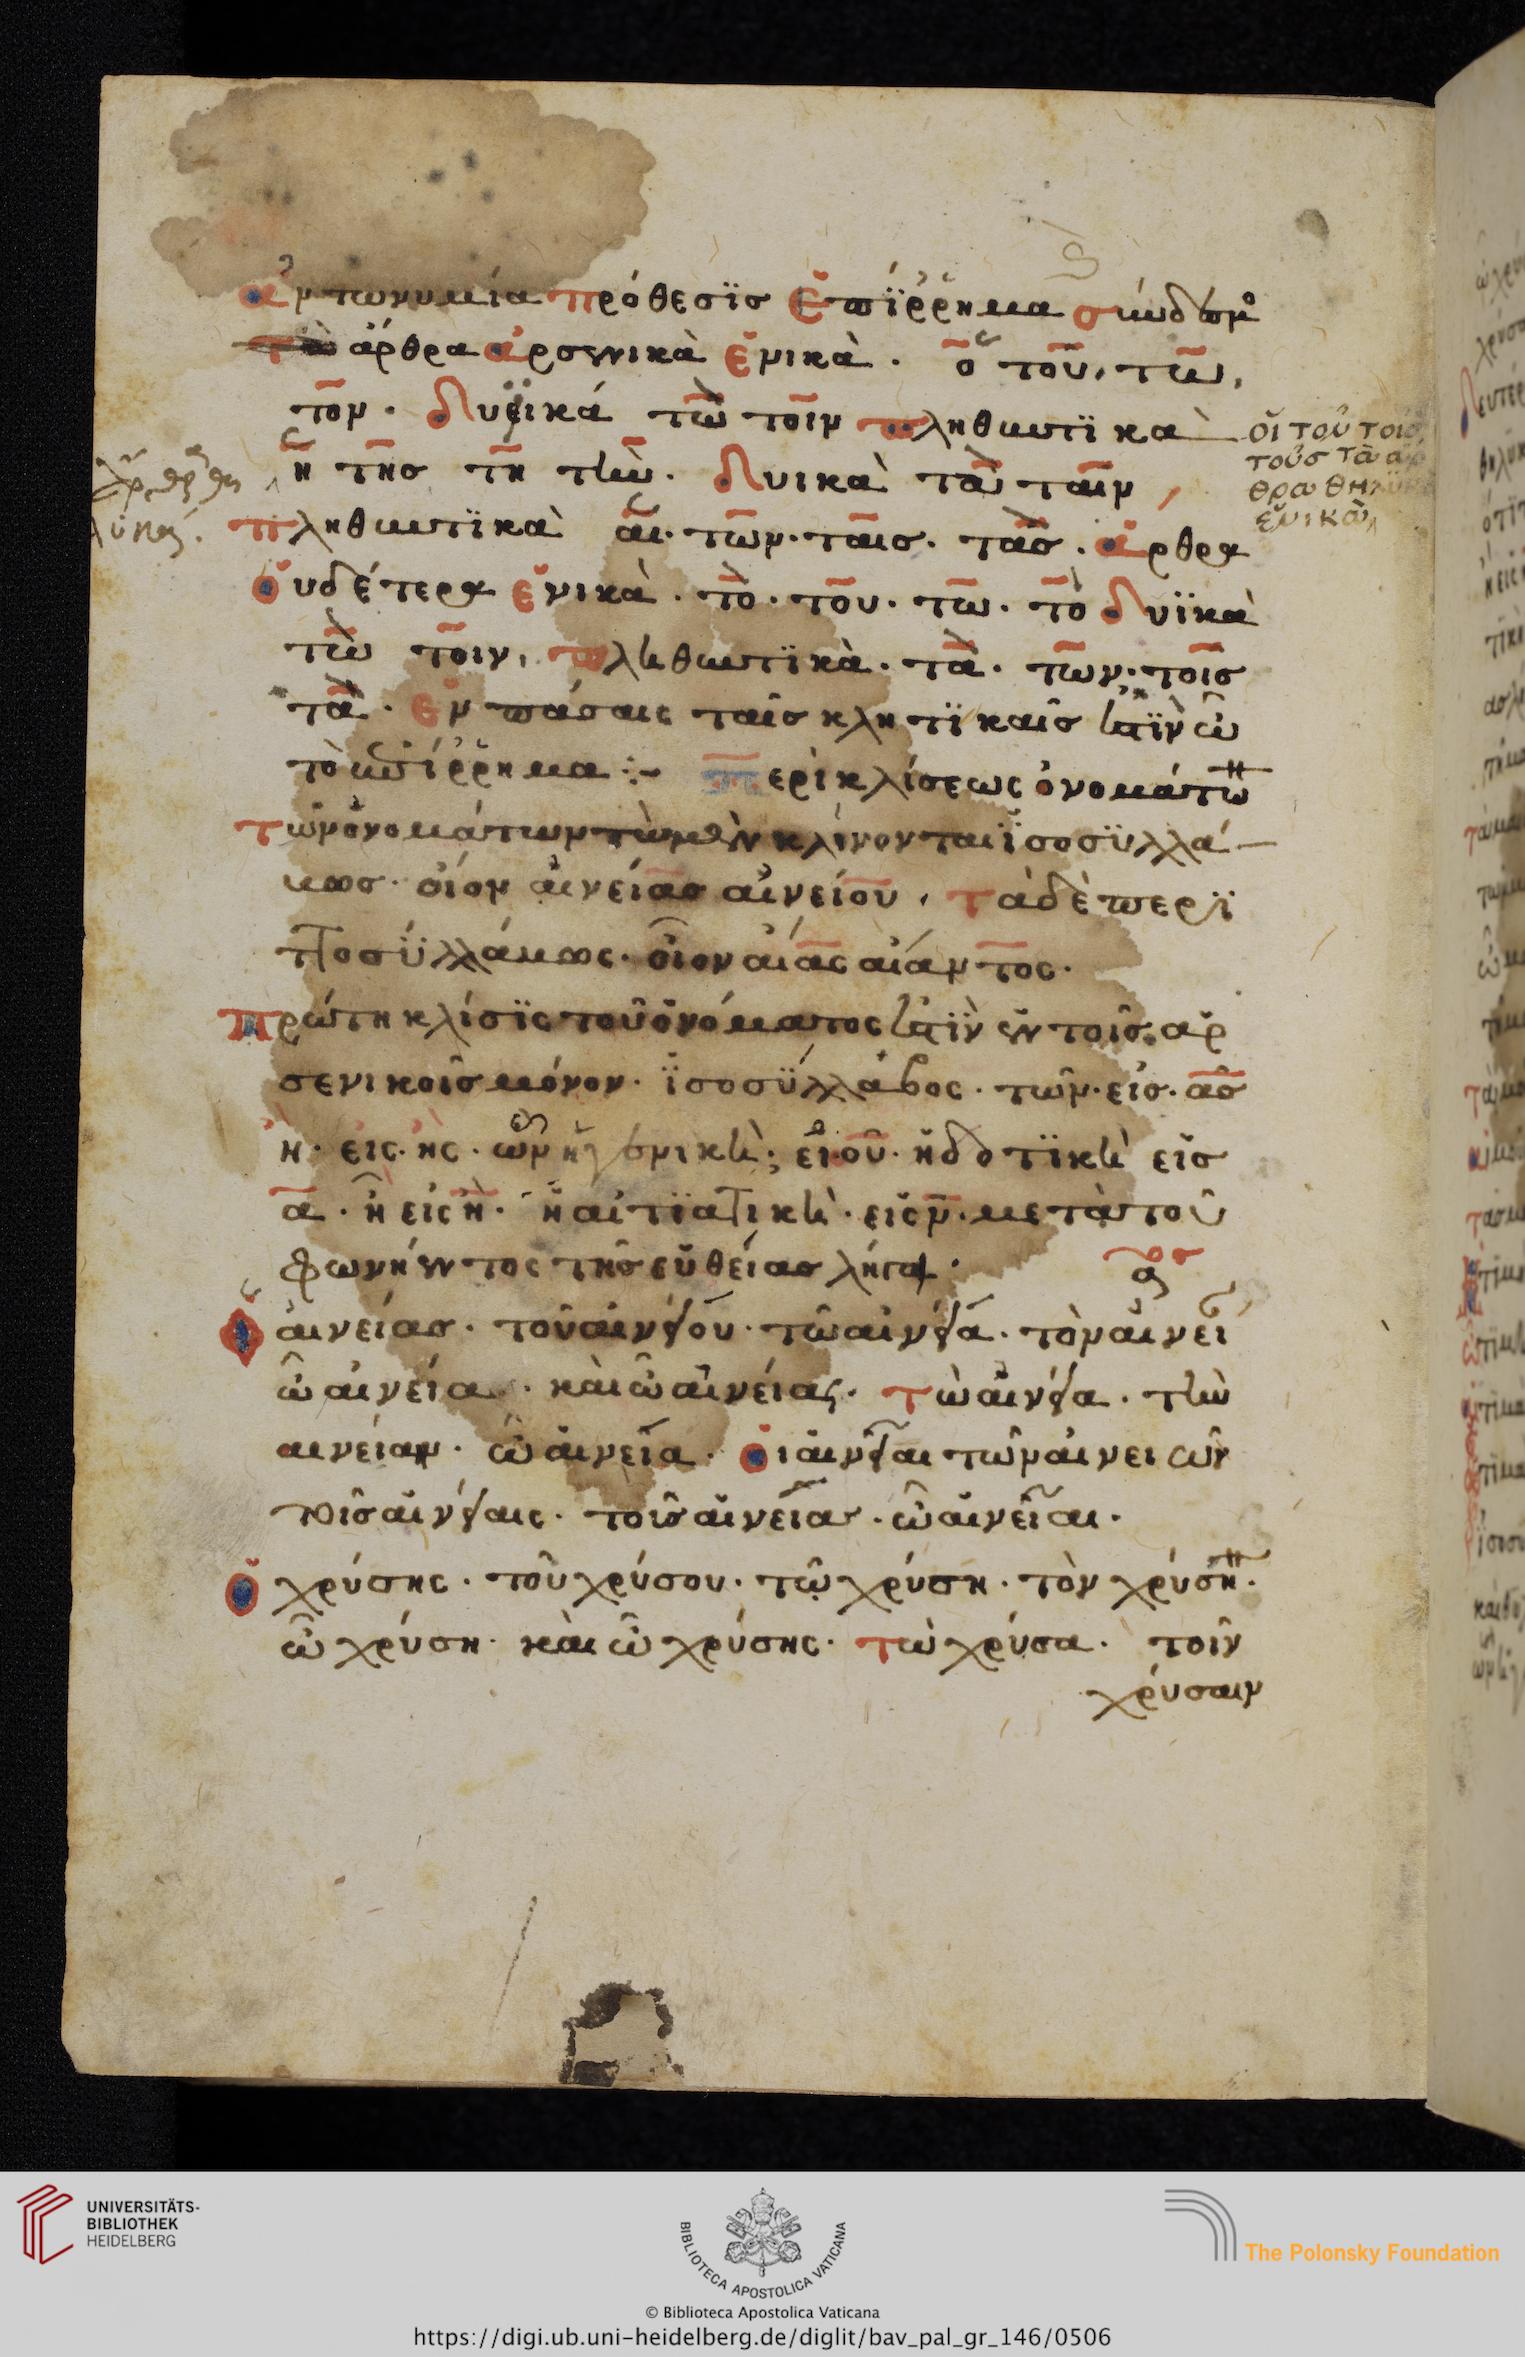 ἀντωνυμία πρόθεσϊσ ἐπϊρρημα σύνδεσμο
τὰ ἄρθρα ἀρσενικὰ ἑνικὰ · ὁ τοῦ, τῶ,
τον · Δυϊκά τὼ τοῖν πληθυντϊκὰ οἱ τοῦ τοισ
τοὺσ τὰ αρ
θρα θηλϋκα
ἑνικὰ
ἡ τησ τη την · Δυικὰ τὰ ταιν
πληθυντϊκὰ αἱ · των · ταισ · τὰσ · ἄρθρα
οὐδέτερα ἑνικὰ · το · του · τω · τὸ Δυϊκὰ
τὼ τοιν, πληθυντϊκὰ · τὰ · των · τοῖσ
τὰ · ἐν πάσαις ταῖσ κλητϊκαῖσ ἐστϊν ὦ
τὸ ἐπίρρημα :~ περὶ κλίσεως ὀνομάτων
τῶν ὀνομάτων τὼ μὲν κλίνονται ϊσοσϋλλά
μωσ · οἷον αἰνείασ αἰνείου, τὰ δὲ περϊ
ττοσϋλλάμως · οἷον αἴας αἴαντος ·
πρώτη κλίσϊς τοῦ ὀνόματος ἐστϊν ἐν τοῖσ αρ
σενικοῖσ μόνον · ϊσοσϋλλάβος · τῶν · εἰσ · ασ
ἢ · εις · ης · ὧν ἡ γενικὴ · εἰ · οῦ · ἡ δοτϊκὴ εἰσ
α · ἢ εἰς η · ἡ αἰτϊατικὴ · εἰς ν · μετὰ τοῦ
φωνήεντος τῆσ εὐθείασ λήγει ·
ὁ αἰνείασ · τοῦ αἰνείου · τῶ αἰνεία · τὸν αἰνεί
ὦ αἰνεία · καὶ ὦ αἰνείας · τὼ αἰνεία · τὴν
αινείαιν · ὦ αἰνεία · οἱ αἰνεῖαι τῶν αἰνειῶν
τοῖσ αἰνείαις · τοὺσ αἰνείασ · ὦ αἰνεῖαι ·
ὁ χρύσης · τοῦ χρύσου · τῷ χρύση · τὸν χρύσην ·
ὦ χρύση · καὶ ὦ χρύσης · τὼ χρύσα · τοῖν
χρύσαιν
UNIVERSITÄTS-
BIBLIOTHEK
HEIDELBERG
BIBLIOTECA APOSTOLICA VATICANA
The Polonsky Foundation
© Biblioteca Apostolica Vaticana
https://digi.ub.uni-heidelberg.de/diglit/bav_pal_gr_146/0506